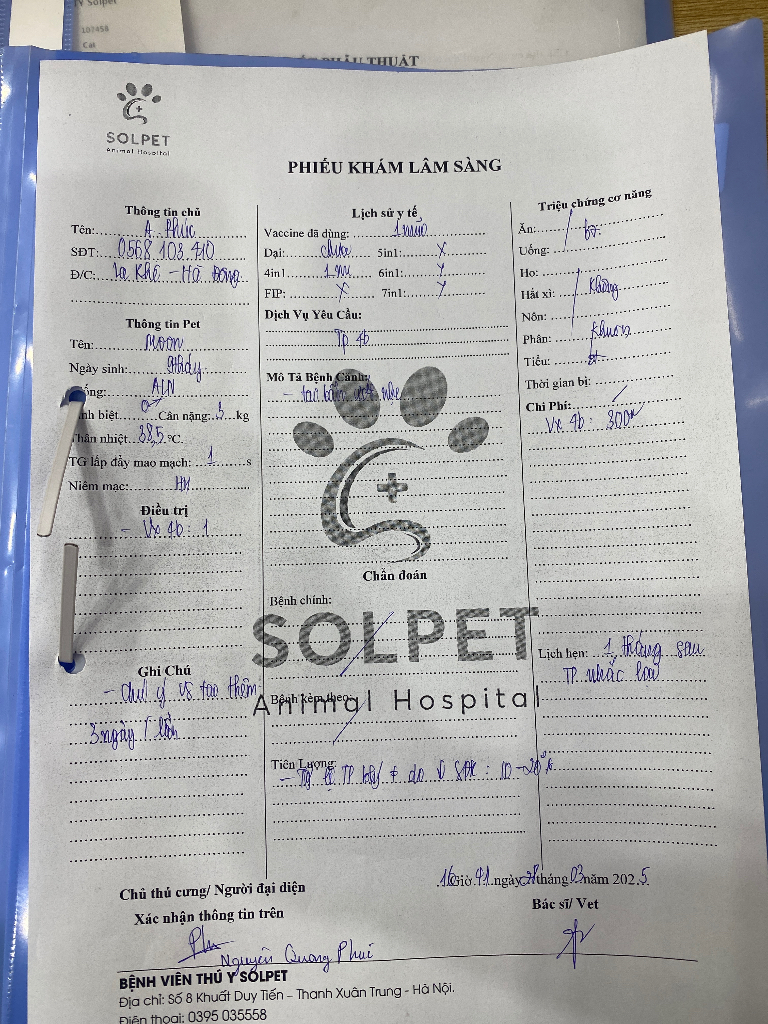 TY Solpet
107458
Cái
PHẪU THUẬT
SOLPET
Animal Hospital
PHIẾU KHÁM LÂM SÀNG
Thông tin chủ
Tên: A. Phúc
SĐT: 0568 108 410
Đ/C: La Khê - Hà Đông
Thông tin Pet
Tên: Moon
Ngày sinh:
Giống: ALN
Tính biệt ♂ Cân nặng: 3 kg
Thân nhiệt 38,5 °C.
TG lấp đầy mao mạch: 1 s
Niêm mạc: HH
Điều trị
- Vx 4b: 1
Ghi Chú
- chú ý vs tai thêm
3 ngày 1 lần
Lịch sử y tế
Vaccine đã dùng: 1 mũi
Dại: chưa 5in1: X
4in1 1 m 6in1: X
FIP: X 7in1: X
Dịch Vụ Yêu Cầu:
TP 4b
Mô Tả Bệnh Cảnh:
- tai bẩn nhẹ
Chẩn đoán
Bệnh chính:
Bệnh kèm theo:
SOLPET
Animal Hospital
Tiên Lượng:
- Tỷ lệ TP : 10-20%
Triệu chứng cơ năng
Ăn: bt
Uống:
Ho:
Hắt xì: Không
Nôn:
Phân: khuôn
Tiểu: bt
Thời gian bị:
Chi Phí:
Vx 4b: 300k
Lịch hẹn: 1 tháng sau
TP nhắc lại
16 Giờ 41 ngày 28 tháng 03 năm 2025
Chủ thú cưng/ Người đại diện
Xác nhận thông tin trên
Bác sĩ/ Vet
Nguyễn Quang Phúc
BỆNH VIỆN THÚ Y SOLPET
Địa chỉ: Số 8 Khuất Duy Tiến – Thanh Xuân Trung - Hà Nội.
Điện thoại: 0395 035558